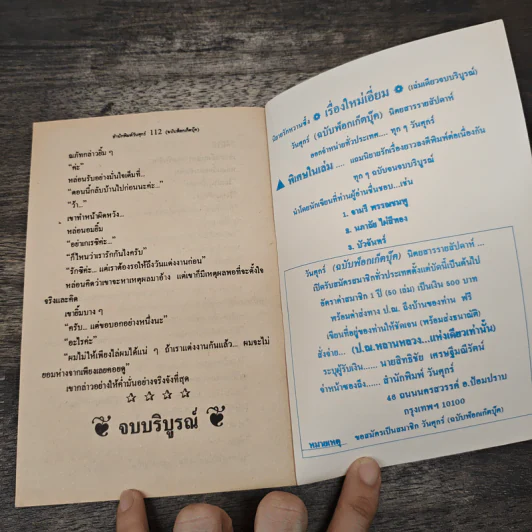 สำนักพิมพ์วันศุกร์ 112 (ฉบับพ็อกเก็ตบุ๊ค)
ณภัทกล่าวยิ้ม ๆ
“ค่ะ”
หล่อนรับอย่างมั่นใจเต็มที่...
“ตอนนี้กลับบ้านไปก่อนนะคะ...”
“ว้า...”
เขาทำหน้าผิดหวัง...
หล่อนอมยิ้ม
“อย่าเกเรซิคะ...”
“ก็ไหนว่าเรารักกันไงครับ”
“รักซิคะ... แต่เราต้องรอให้ถึงวันแต่งงานก่อน”
หล่อนคิดว่าเขาจะหาเหตุผลมาอ้าง แต่เขาก็มีเหตุผลพอที่จะตั้งใจ
จริงและคิด
เขายิ้มบาง ๆ
“ครับ... แต่ขอบอกอย่างหนึ่งนะ”
“อะไรคะ”
“ผมไม่ให้เพียงไล่ผมได้แน่ ๆ ถ้าเราแต่งงานกันแล้ว... ผมจะไม่
ยอมห่างจากเพียงเลยคอยดู”
เขากล่าวอย่างให้คำมั่นอย่างจริงจังที่สุด
จบบริบูรณ์
นิยายรักหวานซึ้ง เรื่องใหม่เอี่ยม (เล่มเดียวจบบริบูรณ์)
วันศุกร์ (ฉบับพ็อกเก็ตบุ๊ค) นิตยสารรายสัปดาห์
ออกจำหน่ายทั่วประเทศ.... ทุก ๆ วันศุกร์
พิเศษในเล่ม .... แถมนิยายรักเรื่องยาวลงตีพิมพ์ต่อเนื่องกัน
ทุก ๆ ฉบับจนจบบริบูรณ์
นำโดยนักเขียนที่ท่านผู้อ่านชื่นชอบ...เช่น
1. จามรี พรรณชมพู
2. นภาลัย ไผ่สีทอง
3. บัวจันทร์
วันศุกร์ (ฉบับพ็อกเก็ตบุ๊ค) นิตยสารรายสัปดาห์ ...
เปิดรับสมัครสมาชิกทั่วประเทศตั้งแต่บัดนี้เป็นต้นไป
อัตราค่าสมาชิก 1 ปี (50 เล่ม) เป็นเงิน 500 บาท
พร้อมค่าส่งทาง ป.ณ. ถึงบ้านของท่าน ฟรี
เขียนที่อยู่ของท่านให้ชัดเจน (พร้อมส่งธนาณัติ)
สั่งจ่าย... (ป.ณ.หลานหลวง...แห่งเดียวเท่านั้น)
ระบุผู้รับเงิน...... นายสิทธิชัย เศรษฐิมณีรัตน์
จ่าหน้าซองถึง...... สำนักพิมพ์ วันศุกร์
46 ถนนนครสวรรค์ อ.ป้อมปราบ
กรุงเทพฯ 10100
หมายเหตุ... ขอสมัครเป็นสมาชิก วันศุกร์ (ฉบับพ็อกเก็ตบุ๊ค)